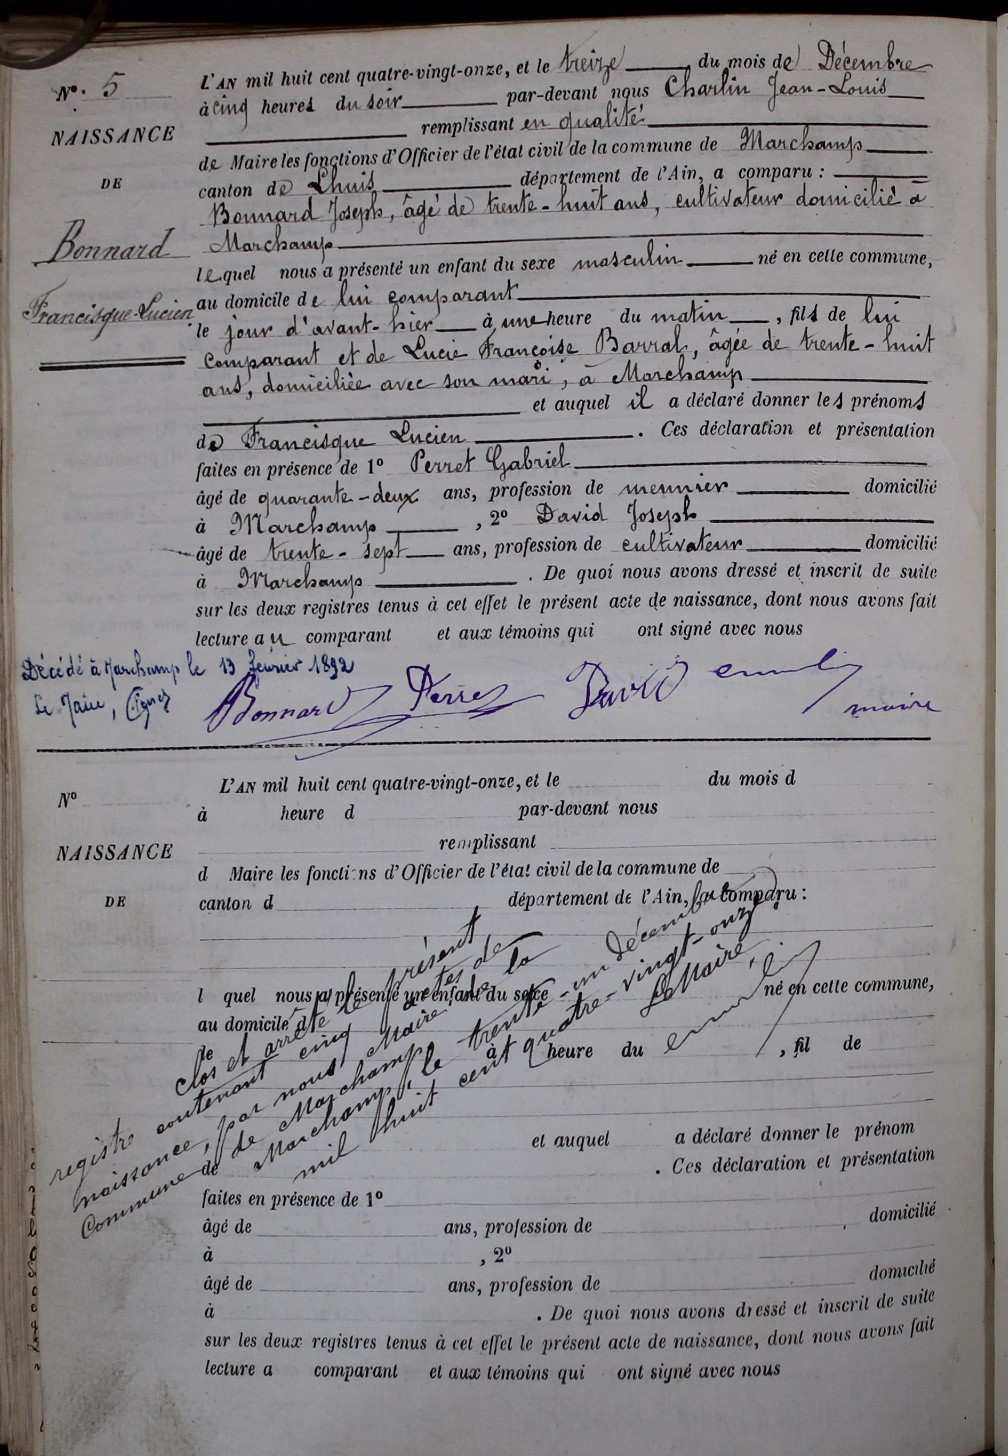 N°. 5
NAISSANCE
DE
Bonnard
Francisque Lucien
L'AN mil huit cent quatre-vingt-onze, et le treize du mois de Décembre
à cinq heures du soir par-devant nous Charlin Jean-Louis
remplissant en qualité
de Maire les fonctions d'Officier de l'état civil de la commune de Marchamp
canton de Lhuis département de l'Ain, a comparu :
Bonnard Joseph, âgé de trente-huit ans, cultivateur domicilié à
Marchamp
lequel nous a présenté un enfant du sexe masculin né en cette commune,
au domicile de lui comparant
le jour d'avant-hier à une heure du matin, fils de lui
comparant et de Lucie Françoise Barral, âgée de trente-huit
ans, domiciliée avec son mari, à Marchamp
et auquel il a déclaré donner les prénoms
de Francisque Lucien. Ces déclaration et présentation
faites en présence de 1° Perret Gabriel
âgé de quarante-deux ans, profession de meunier domicilié
à Marchamp, 2° David Joseph
âgé de trente-sept ans, profession de cultivateur domicilié
à Marchamp. De quoi nous avons dressé et inscrit de suite
sur les deux registres tenus à cet effet le présent acte de naissance, dont nous avons fait
lecture au comparant et aux témoins qui ont signé avec nous
Décédé à Marchamp le 13 février 1892
Le Maire,
Bonnard Perret David
maire
N°
NAISSANCE
DE
L'AN mil huit cent quatre-vingt-onze, et le du mois d
à heure d par-devant nous
remplissant
d Maire les fonctions d'Officier de l'état civil de la commune de
canton d département de l'Ain, a comparu :
l quel nous a présenté un enfant du sexe né en cette commune,
au domicile d
le à heure du , fil de
et auquel a déclaré donner le prénom
de . Ces déclaration et présentation
faites en présence de 1°
âgé de ans, profession de domicilié
à , 2°
âgé de ans, profession de domicilié
à . De quoi nous avons dressé et inscrit de suite
sur les deux registres tenus à cet effet le présent acte de naissance, dont nous avons fait
lecture a comparant et aux témoins qui ont signé avec nous
Clos et arrêté le présent
registre contenant cinq actes de
naissance, par nous, Maire de la
Commune de Marchamp
Marchamp, le trente-un Décembre
mil huit cent quatre-vingt-onze
Le Maire,